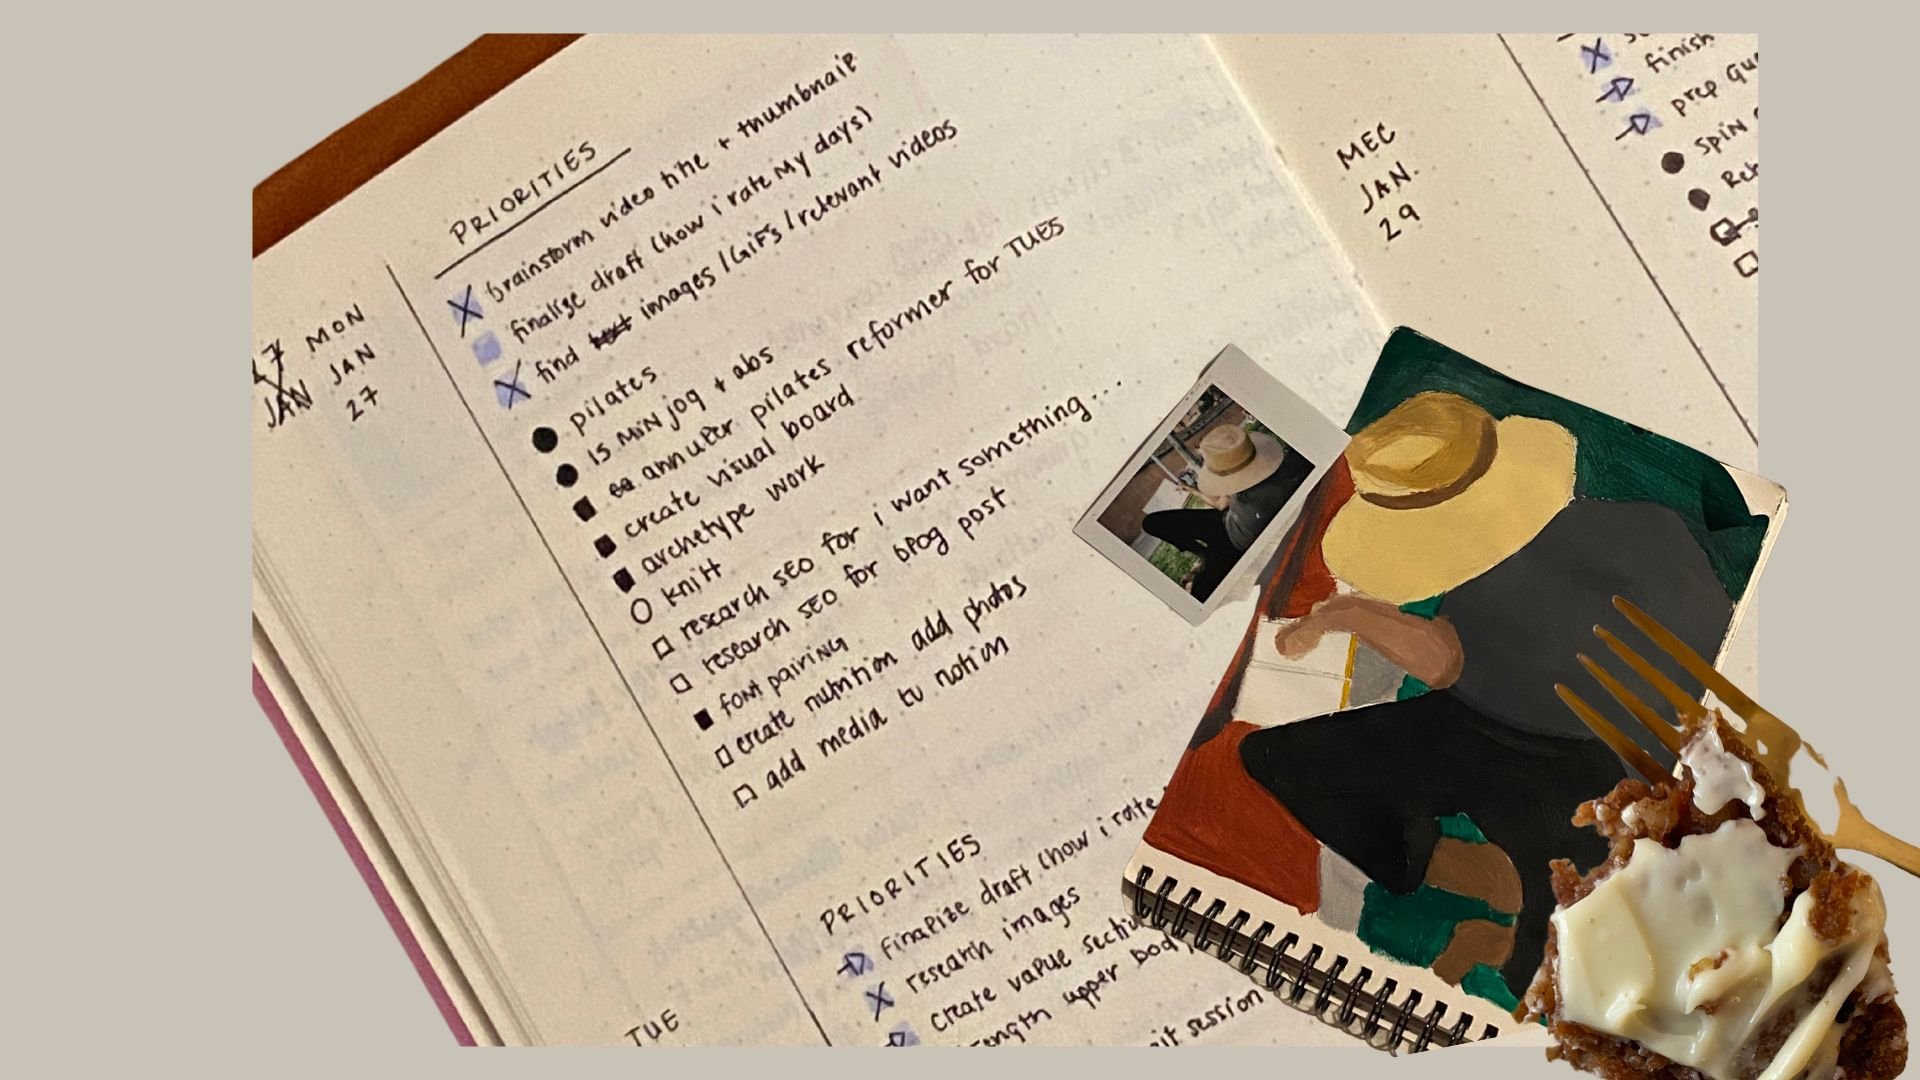 PRIORITIES
brainstorm video title + thumbnail
finalize draft (how i rate my days)
find text images/GIFs/relevant videos
17 MON
JAN JAN
27
pilates
15 MIN jog + abs
pilates reformer for TUES
create visual board
archetype work
knit
research SEO for i want something...
research SEO for blog post
font pairing
create nutrition add photos
add media to notion
PRIORITIES
finalize draft (how i rate
research images
create value
upper body
session
TUE
MEC
JAN.
29
finish
prep
SPIN